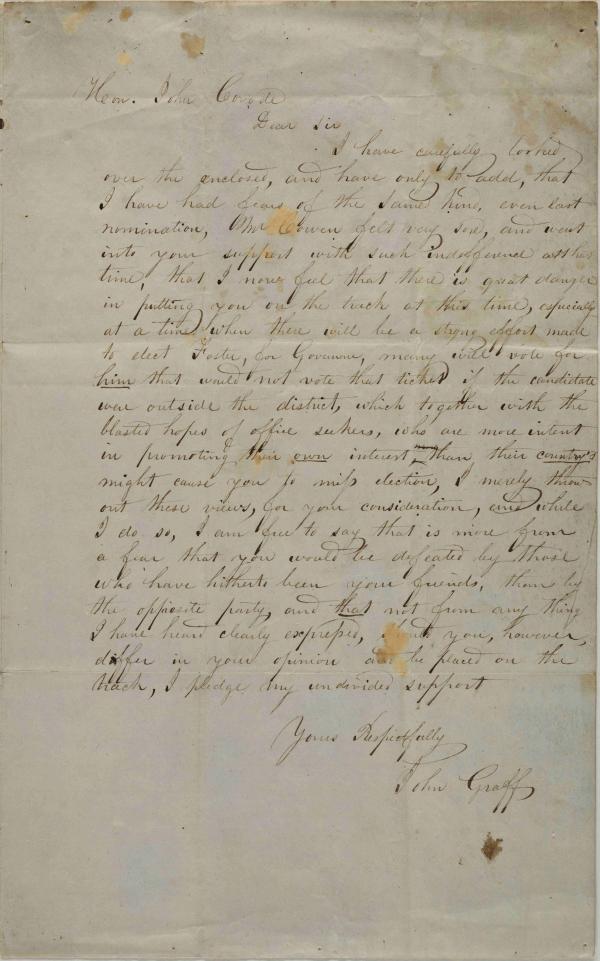 Hon. John Covode
Dear Sir
I have carefully looked
over the enclosed, and have only to add, that
I have had fears of the same kind, even last
nomination, Mr Cowen felt very sore, and went
into your support with such indifference at that
time, that I now feel that there is great danger
in putting you on the track at this time, especially
at a time when there will be a strong effort made
to elect Foster, for Governor, many will vote for
him that would not vote that ticket if the candidate
were outside the district, which together with the
blasted hopes of office seekers, who are more intent
in promoting their own interest, than their country's
might cause you to miss election, I merely throw
out these views, for your consideration, and while
I do so, I am free to say that is more from
a fear that you would be defeated by those
who have hitherto been your friends, than by
the opposite party, and that not from any thing
I have heard clearly expressed, should you, however,
differ in your opinion and be placed on the
track, I pledge my undivided support
Yours Respectfully
John Graff